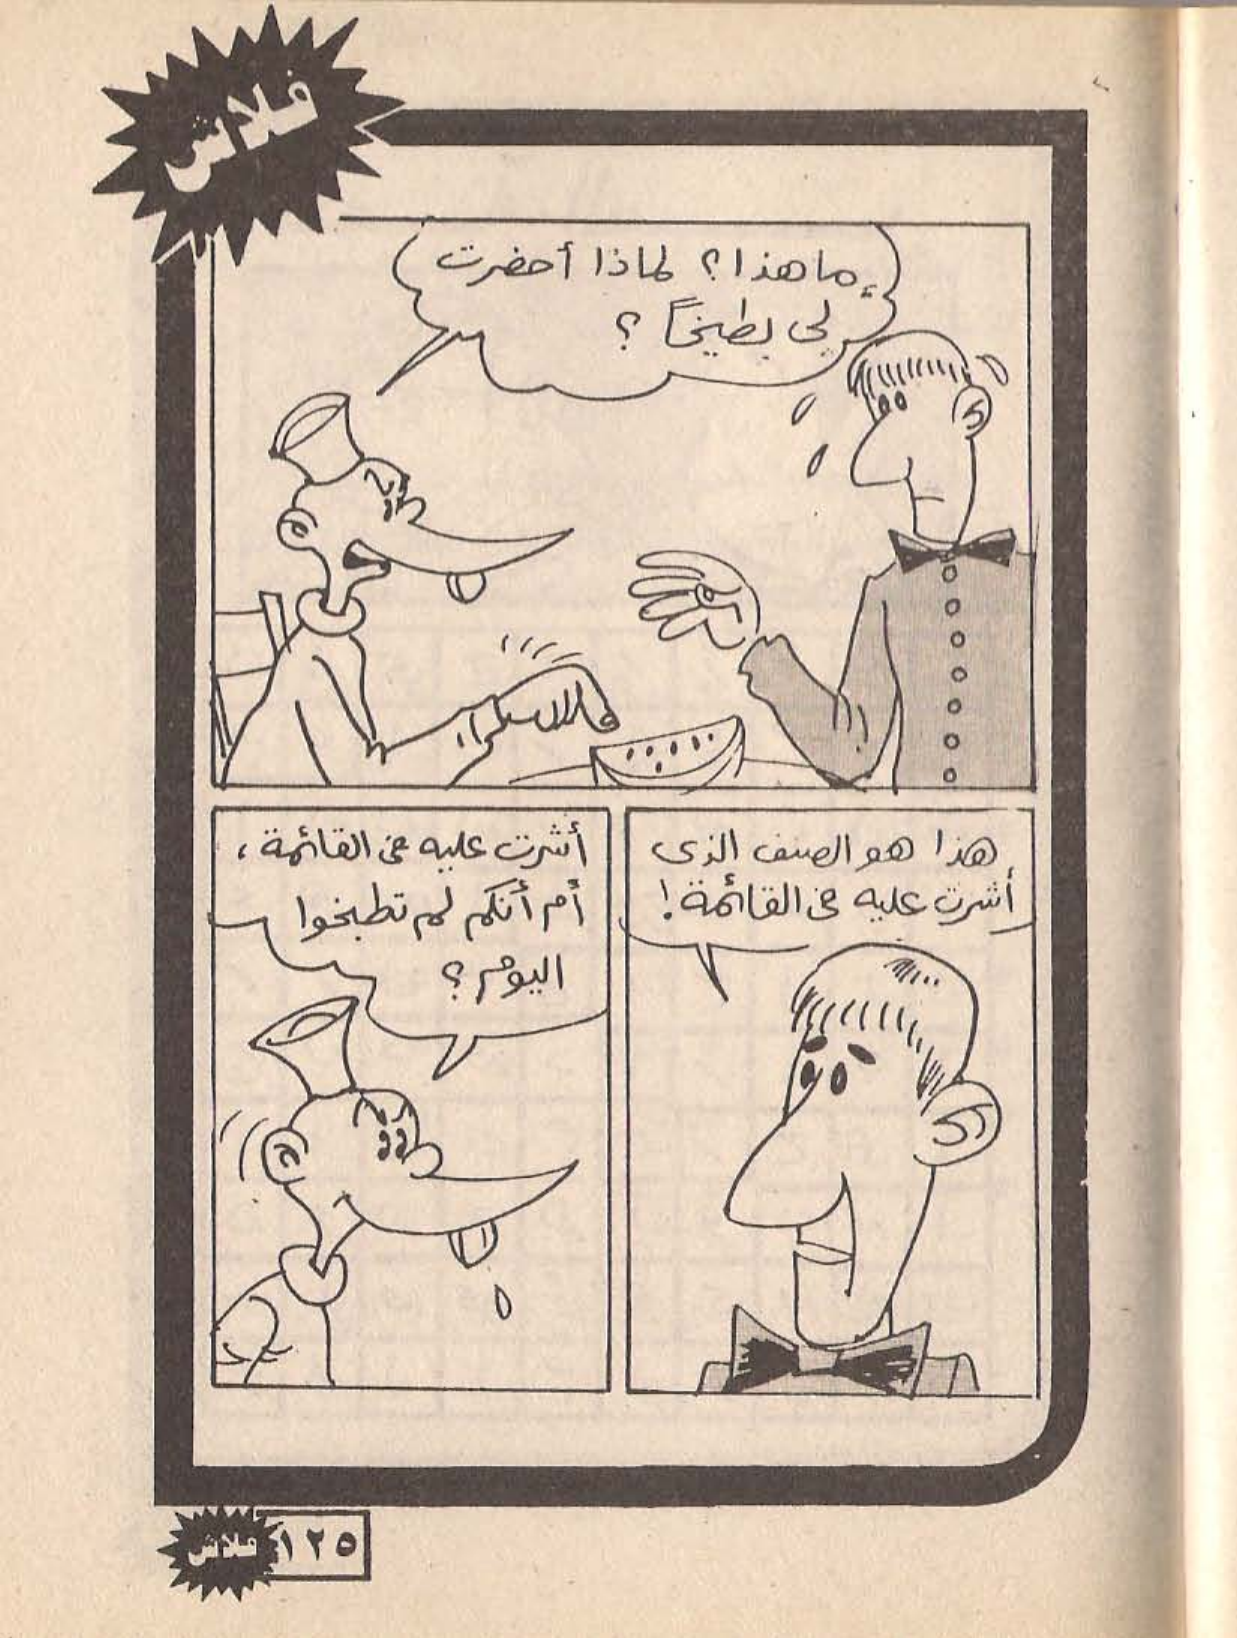 فلاش
ما هذا؟ لماذا أحضرت
لى بطيخاً؟
هذا هو الصنف الذى
أشرت عليه فى القائمة!
أشرت عليه فى القائمة،
أم أنكم لم تطبخوا
اليوم؟
فلاش ١٢٥